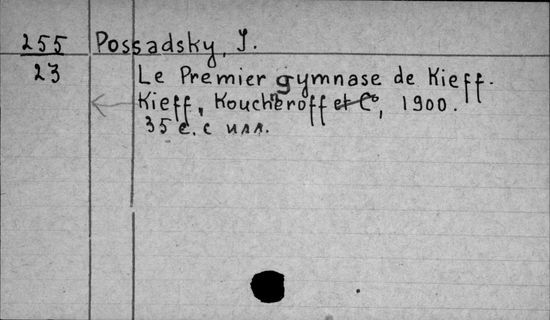 255 Possadsky, J.
23 Le Premier gymnase de Kieff.
Kieff, Koucheroff et Cº, 1900.
35 с. с илл.